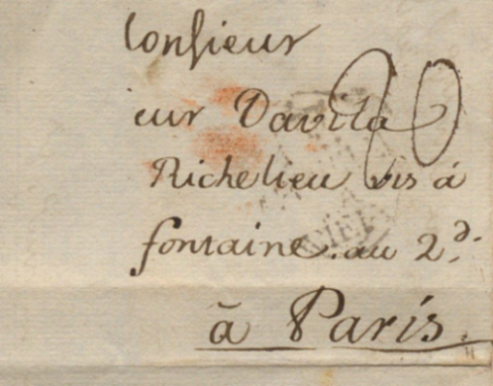 onsieur
eur Davila 20
Richelieu vis à
fontaine. au 2d.
à Paris.